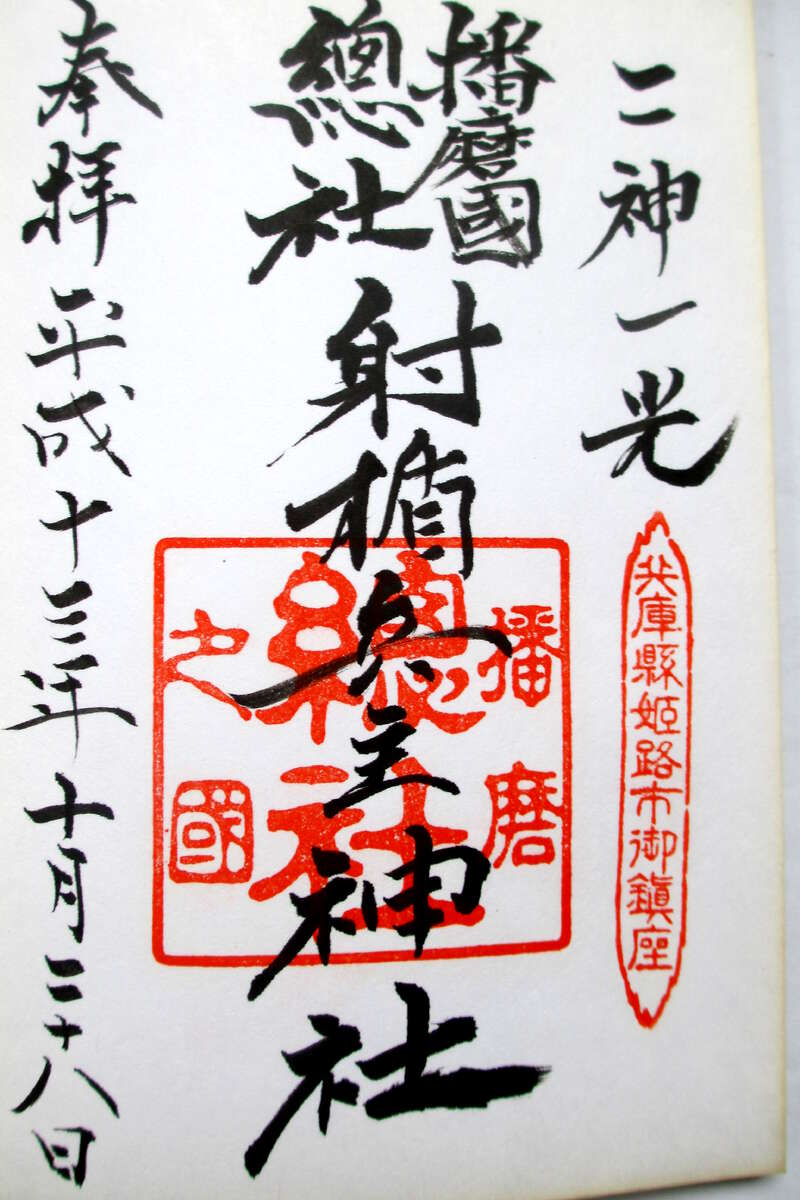 二神一光
兵庫縣姫路市御鎮座
播磨國
總社
射楯兵主神社
播磨
總社
之國
奉拝 平成十三年十月二十八日